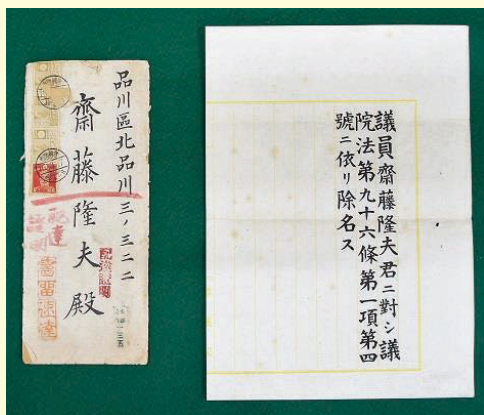 品川區北品川三ノ三二二
齋藤隆夫殿
配達證明
書留速達
配達證明
議員齋藤隆夫君ニ對シ議
院法第九十六條第一項第四
號ニ依リ除名ス